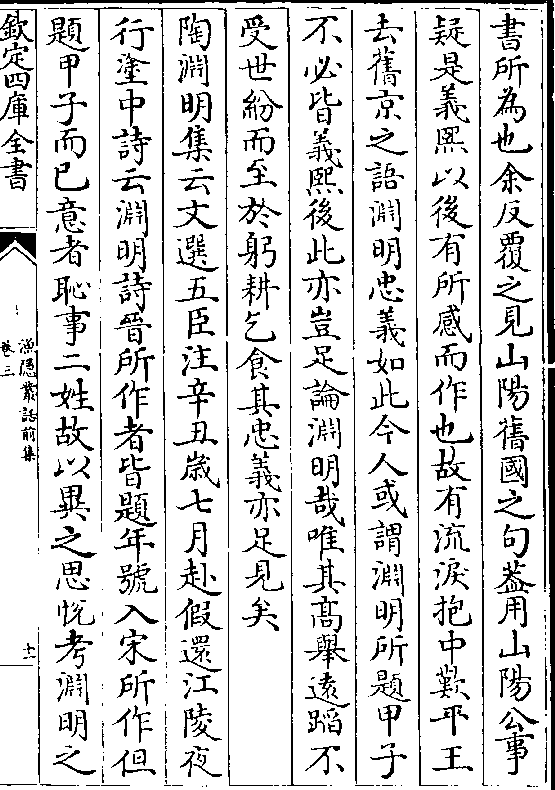 書所為也余反覆之見山陽舊國之句葢用山陽公事
疑是義熙以後有所感而作也故有流淚抱中歎平王
去舊京之語淵明忠義如此今人或謂淵明所題甲子
不必皆義熙後此亦豈足論淵明哉唯其髙舉遠蹈不
受世紛而至於躬耕乞食其忠義亦足見矣
陶淵明集云文選五臣注辛丑歲七月赴假還江陵夜
行塗中詩云淵明詩晉所作者皆題年號入宋所作但
題甲子而已意者恥事二姓故以異之思恱考淵明之
欽定四庫全書
漁隱叢話前集
卷三
十一